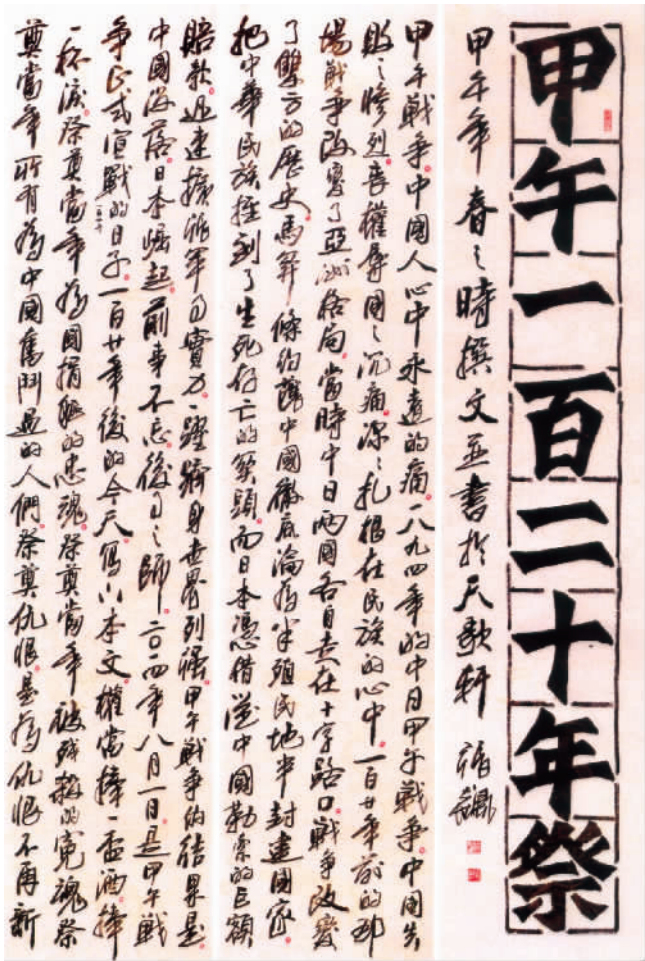 甲午一百二十年祭
甲午年春之時撰文並書於天歌軒
甲午戰爭。中國人心中永遠的痛。一八九四年的中日甲午戰爭。中國失
敗之慘烈。喪權辱國之沉痛。深深扎根在民族的心中。一百廿年前的那
場戰爭改變了亞洲格局。當時中日兩國各自走在十字路口。戰爭改變
了雙方的歷史。馬關條約讓中國徹底淪為半殖民地半封建國家。
把中華民族推到了生死存亡的關頭。而日本憑借從中國勒索的巨額
賠款。迅速擴張軍事實力。一躍躋身世界列強。甲午戰爭的結果是。
中國沒落。日本崛起。前事不忘。後事之師。二〇一四年八月一日。是甲午戰
爭正式宣戰的日子。一百廿年後的今天。寫下本文。權當捧一盃酒。捧
一杯淚。祭奠當年為國捐軀的忠魂。祭奠當年被殘殺的冤魂。祭
奠當年所有為中國奮鬥過的人們。祭奠仇恨。是為仇恨不再新